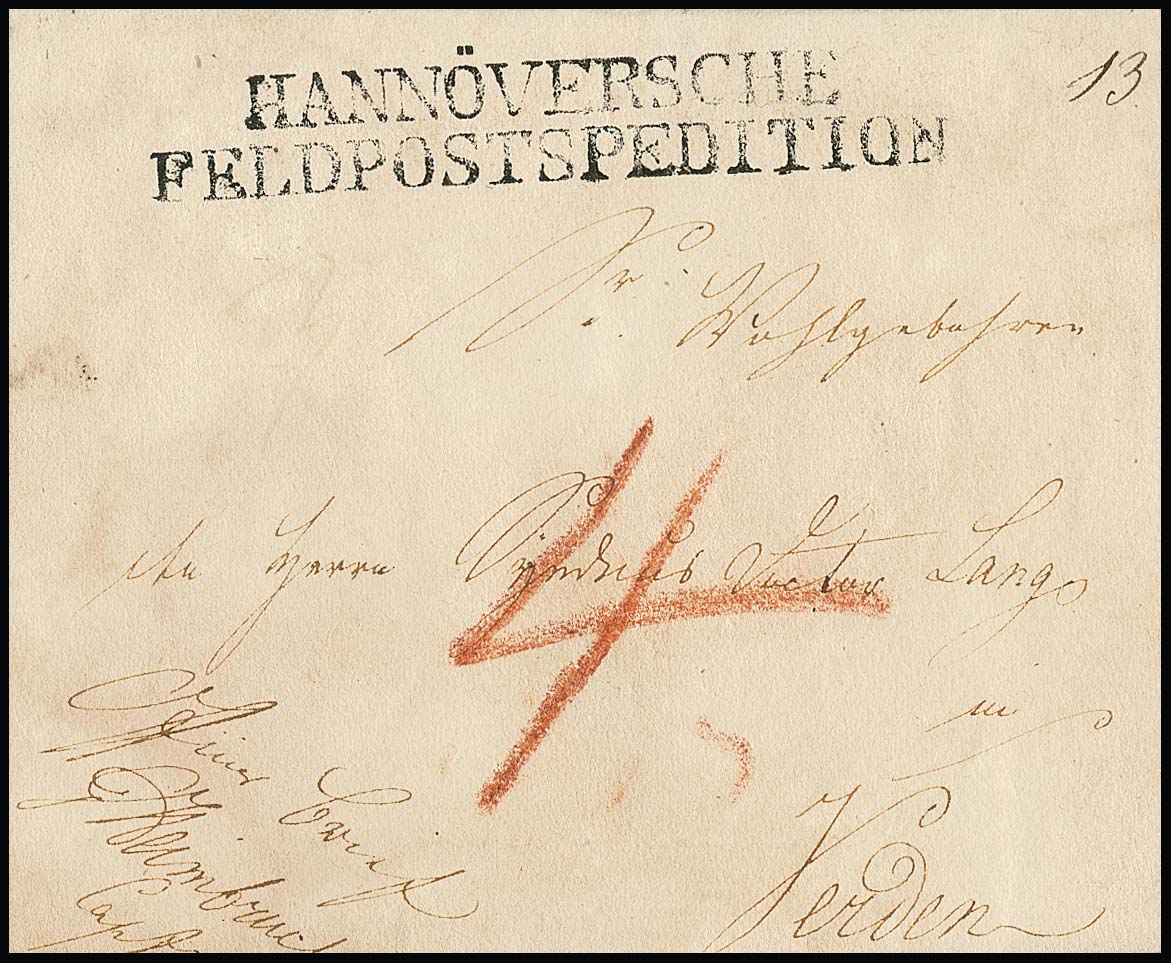 HANNÖVERSCHE
13
FELDPOSTSPEDITION
Sr. Wohlgebohren
4
Herrn Syndicus Doctor Lang
in
Verden
Brief